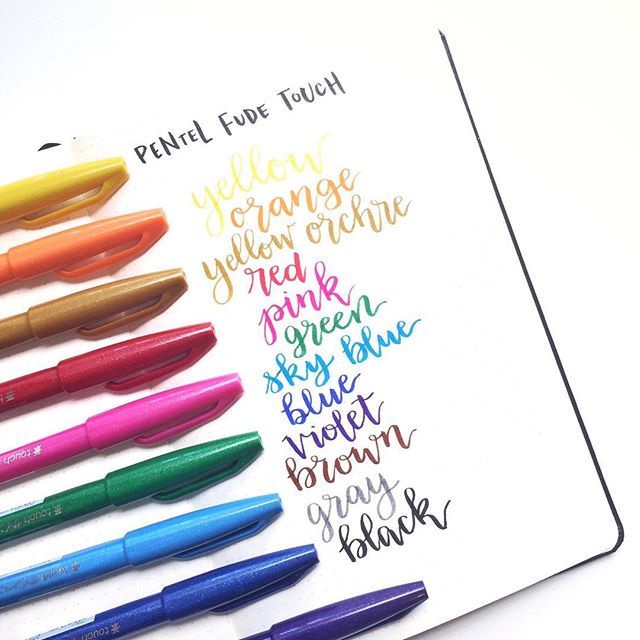 PENTEL FUDE TOUCH
yellow
orange
yellow orchre
red
pink
green
sky blue
blue
violet
brown
gray
black
touch
touch
touch
touch サイン
touch サイン
touch サイン